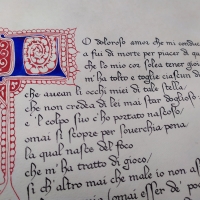 O doloroso amor che mi conduc
a fui di morte per piacer di qu
che lo mio cor solea tener gioio
m'ha tolto e toglie ciascun dì
che avean li occhi miei di tale stella
che non credea di lei mai star doglioso
e 'l colpo suo c'ho portato nascoso
omai si scopre per soverchia pena
la qual nasce del foco
che m'ha tratto di gioco
sì ch'altro mai che male io non as
omai esser de' po